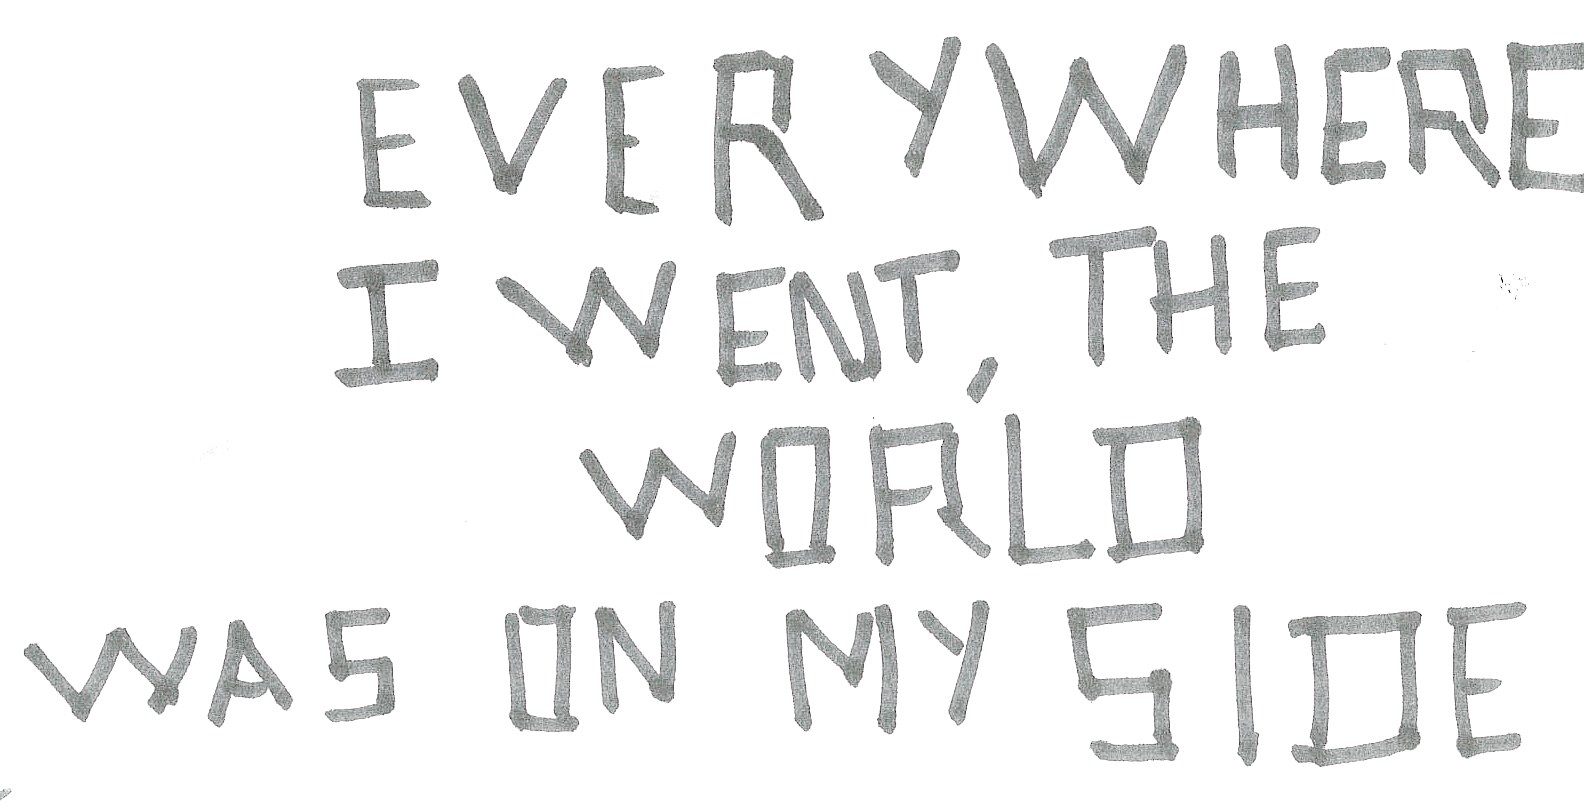 EVERYWHERE
I WENT, THE
WORLD
WAS ON MY SIDE